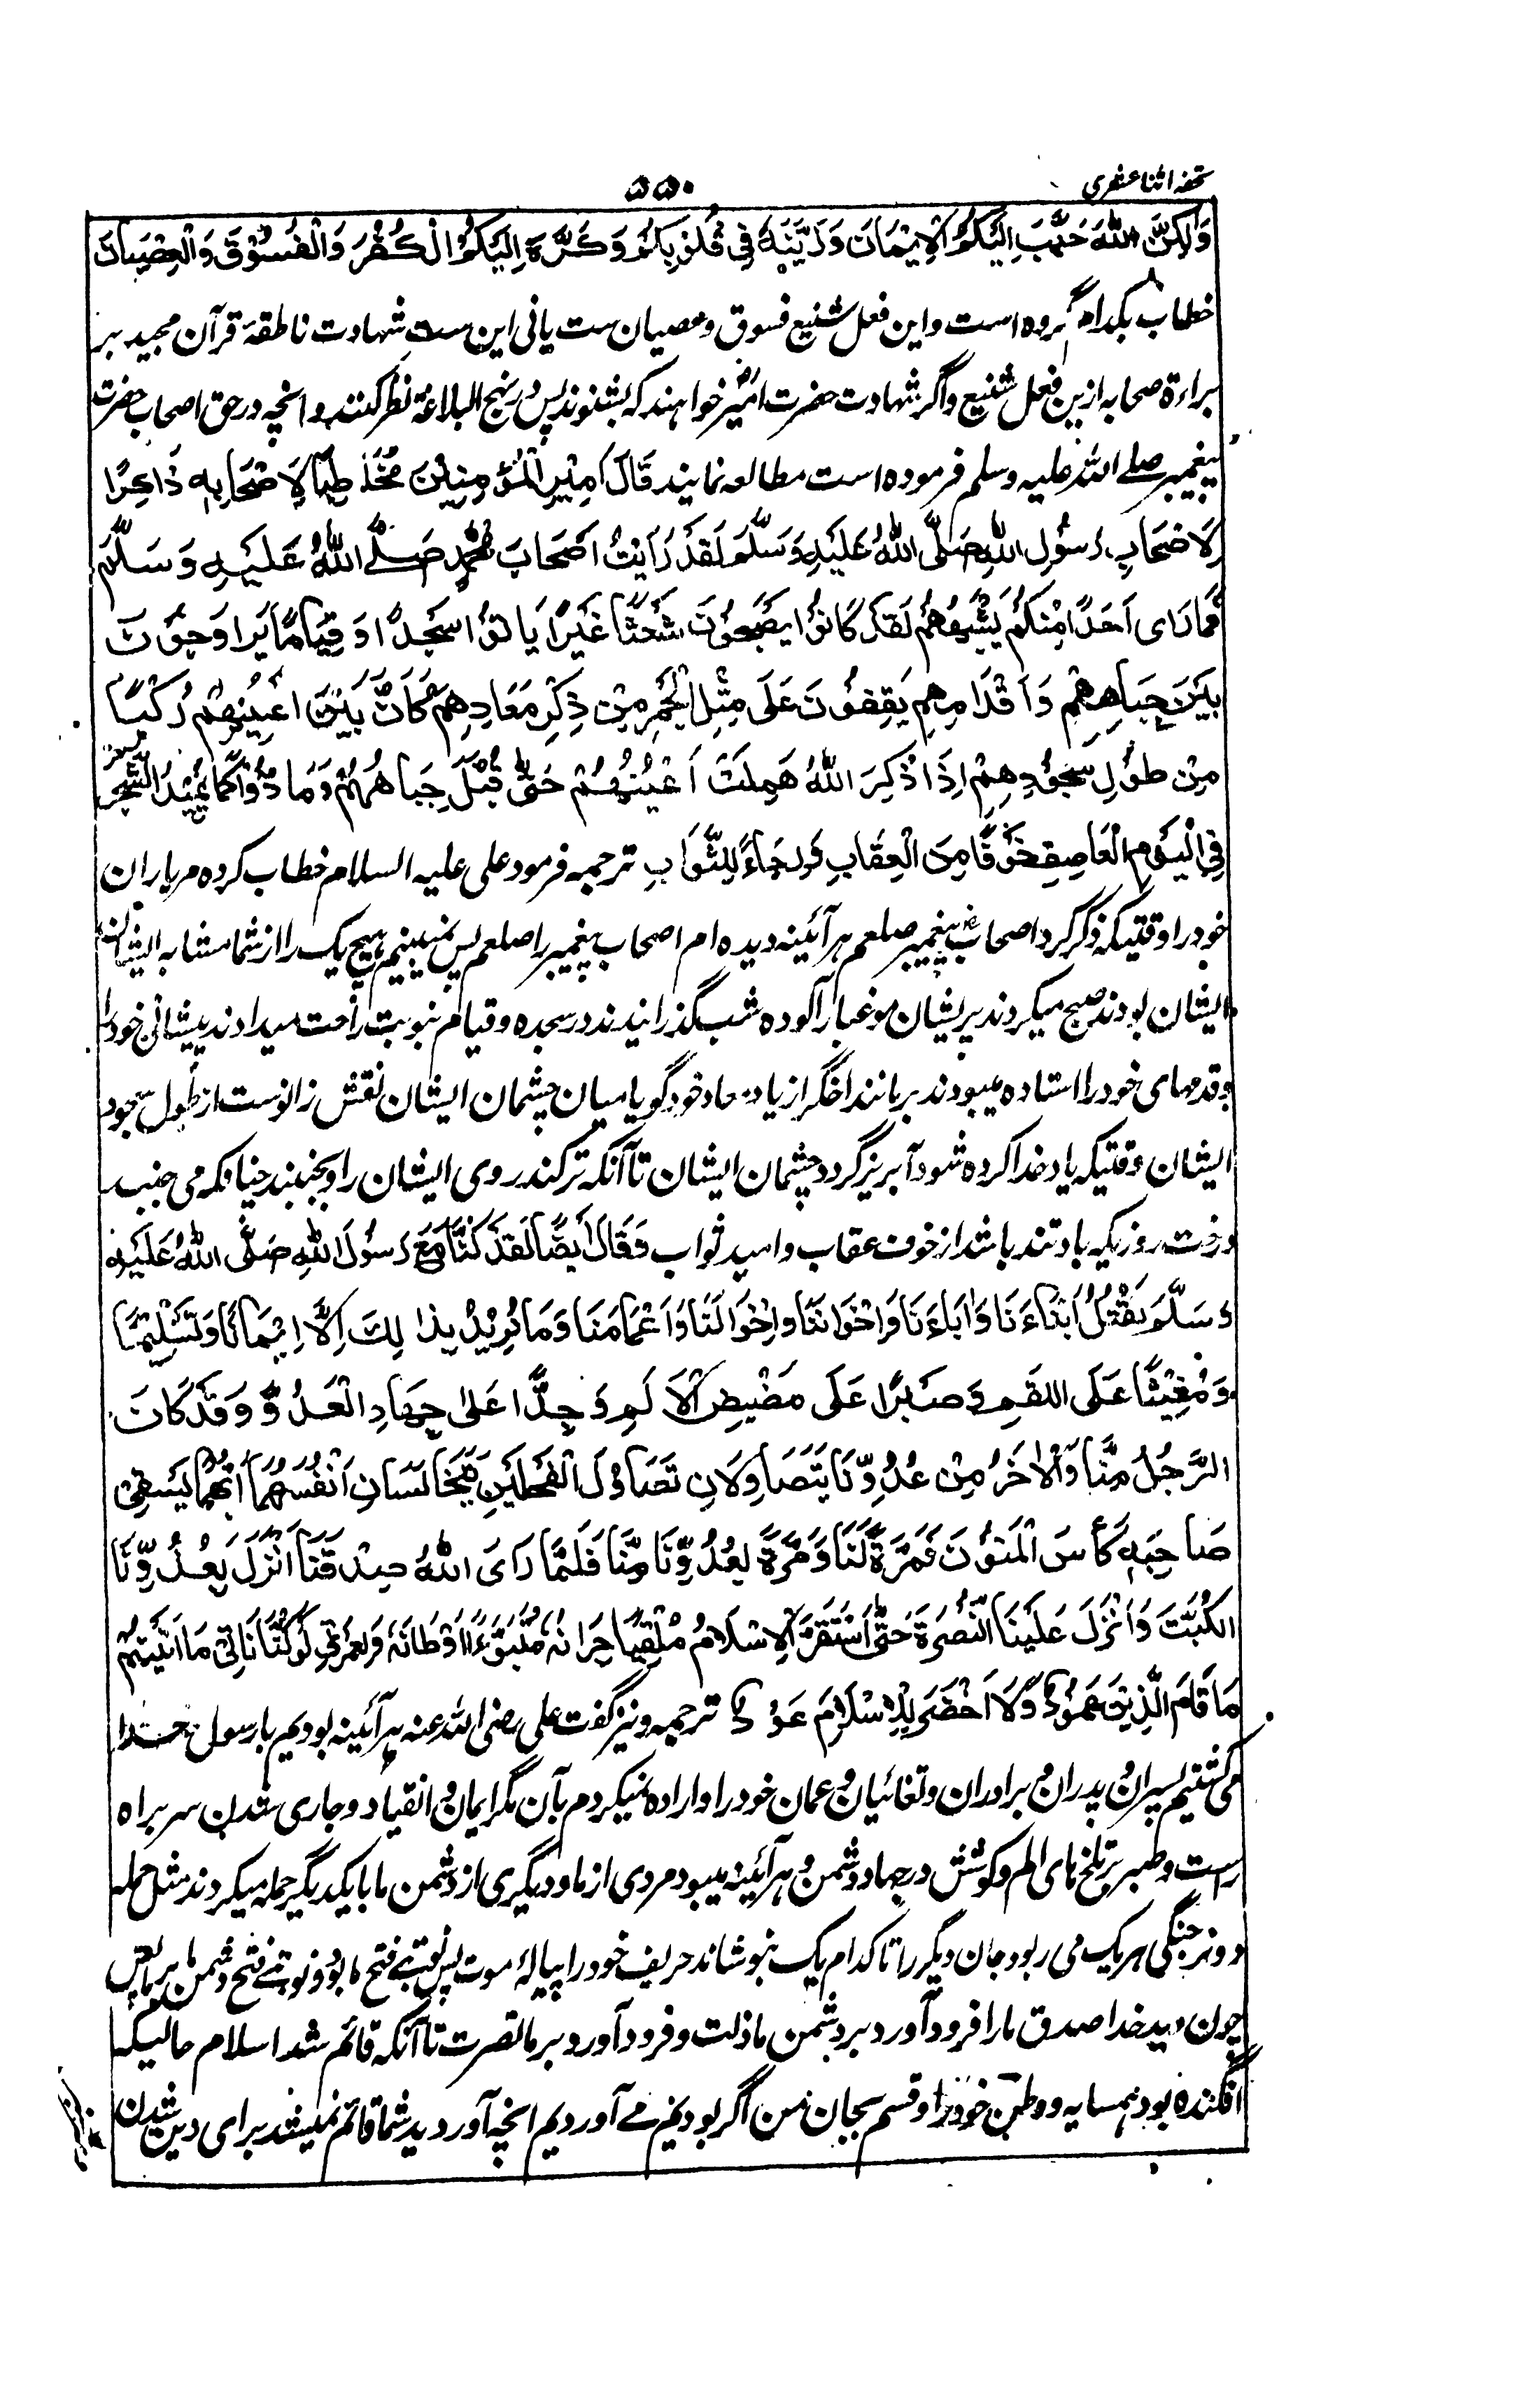 تحفہ اثنا عشری
۵۵۰
وَلٰكِنَّ اللهَ حَبَّبَ اِلَيْكُمُ الْاِيْمَانَ وَزَيَّنَهٗ فِىْ قُلُوْبِكُمْ وَكَرَّهَ اِلَيْكُمُ الْكُفْرَ وَالْفُسُوْقَ وَالْعِصْيَانَ
خطاب بکدام گروه است و این فعل شنیع فسوق و عصیان ست یا نی این ست شهادت ناطقهٔ قرآن مجید بر
براءة صحابه ازین فعل شنیع و اگر شهادت حضرت امیر خواهند که بشنوند پس در نهج البلاغة نظر کنند و انچه در حق اصحاب حضرت
پیغمبر صلے الله علیه وسلم فرموده است مطالعه نمایند قَالَ اَمِيْرُ الْمُؤْمِنِيْنَ مُخَاطِبًا لِاَصْحَابِهٖ ذَاكِرًا
لِاَصْحَابِ رَسُوْلِ اللهِ صَلَّى اللهُ عَلَيْهِ وَسَلَّمَ لَقَدْ رَاَيْتُ اَصْحَابَ مُحَمَّدٍ صَلَّے اللهُ عَلَيْهِ وَسَلَّمَ
فَمَا رَاى اَحَدًا مِنْكُمْ يُشْبِهُهُمْ لَقَدْ كَانُوْا يُصْبِحُوْنَ شُعْثًا غُبْرًا بَاتُوْا سُجَّدًا وَقِيَامًا يُرَاوِحُوْنَ
بَيْنَ جِبَاهِهِمْ وَاَقْدَامِهِمْ يَقِفُوْنَ عَلَى مِثْلِ الْجَمْرِ مِنْ ذِكْرِ مَعَادِهِمْ كَاَنَّ بَيْنَ اَعْيُنِهِمْ رُكَبًا
مِنْ طُوْلِ سُجُوْدِهِمْ اِذَا ذُكِرَ اللهُ هَمِلَتْ اَعْيُنُهُمْ حَتّٰى تُبَلَّ جِبَاهُهُمْ وَمَادُوْا كَمَا يَمِيْدُ الشَّجَرُ
فِى الْيَوْمِ الْعَاصِفِ خَوْفًا مِنَ الْعِقَابِ وَرَجَاءً لِلثَّوَابِ ترجمه فرمود علی علیه السلام خطاب کرده مر یاران
خود را وقتیکه ذکر کرد اصحاب پیغمبر صلعم هر آئینه دیده ام اصحاب پیغمبر را صلعم پس نمی بینم هیچ یک را از شما مشابه ایشان
ایشان بودند صبح میکردند پریشان مو غبار آلوده شب گذرانیدند در سجده و قیام نبوبت راحت میدادند پیشانی خود را
و قدمهای خود را استاده میبودند بر مانند اخگر از یاد معاد خود گویا میان چشمان ایشان نقش زانوست از طول سجود
ایشان وقتیکه یاد خدا کرده شود آبریز گردد چشمان ایشان تا آنکه تر کند روی ایشان را و بجنبند چنانکه می جنبد
درخت روزیکه باد تند باشد از خوف عقاب و امید ثواب وَقَالَ اَيْضًا لَقَدْ كُنَّا مَعَ رَسُوْلِ اللهِ صَلَّى اللهُ عَلَيْهِ
وَسَلَّمَ نَقْتُلُ اَبْنَاءَنَا وَاٰبَاءَنَا وَاِخْوَانَنَا وَاَخْوَالَنَا وَاَعْمَامَنَا وَمَا نُرِيْدُ بِذٰلِكَ اِلَّا اِيْمَانًا وَتَسْلِيْمًا
وَمُضِيًّا عَلَى اللَّقَمِ وَصَبْرًا عَلَى مَضِيْضِ الْاَلَمِ وَجِدًّا عَلٰى جِهَادِ الْعَدُوِّ وَقَدْ كَانَ
الرَّجُلُ مِنَّا وَالْاٰخَرُ مِنْ عَدُوِّنَا يَتَصَاوَلَانِ تَصَاوُلَ الْفَحْلَيْنِ يَتَخَالَسَانِ اَنْفُسَهُمَا اَيُّهُمَا يَسْقِىْ
صَاحِبَهٗ كَأْسَ الْمَنُوْنَ فَمَرَّةً لَنَا وَمَرَّةً لِعَدُوِّنَا مِنَّا فَلَمَّا رَاَى اللهُ صِدْقَنَا اَنْزَلَ بِعَدُوِّنَا
الْكَبْتَ وَاَنْزَلَ عَلَيْنَا النُّصْرَةَ حَتّٰى اسْتَقَرَّ الْاِسْلَامُ مُلْقِيًا جِرَانَهٗ مُتَبَوِّءًا اَوْطَانَهٗ وَلَعَمْرِىْ لَوْ كُنَّا نَاْتِىْ مَا اَتَيْتُمْ
مَا قَامَ الدِّيْنِ عَمُوْدٌ وَلَا اخْضَرَّ لِلْاِسْلَامِ عَوْدٌ ترجمه و نیز گفت علی رضی الله عنه هر آئینه بودیم با رسول خدا
می کشتیم پسران و پدران و برادران و تغائیان و عمان خود را و اراده نمیکردم بآن مگر ایمان و انقیاد و جاری شدن سر براه
راست و صبر بر تلخ های الم و کوشش در جهاد دشمن و هر آئینه میبود مردی از ما و دیگری از دشمن ما با یکدیگر حمله میکردند مثل حمله
دو نر جنگی هر یک می ربود جان دیگر را تا کدام یک بنوشاند حریف خود را پیالهٔ موت پس نوبتے فتح ما بود و نوبتے فتح دشمن ما بر ما پس
چون دید خدا صدق ما را فرود آورد بر دشمن ما ذلت و فرود آورد بر ما نصرت تا آنکه قائم شد اسلام حالیکه
افگنده بود همسایه و وطن خود را و قسم بجان من اگر بودیم مے آوردیم انچه آوردید شما قائم نمیشد برای دین